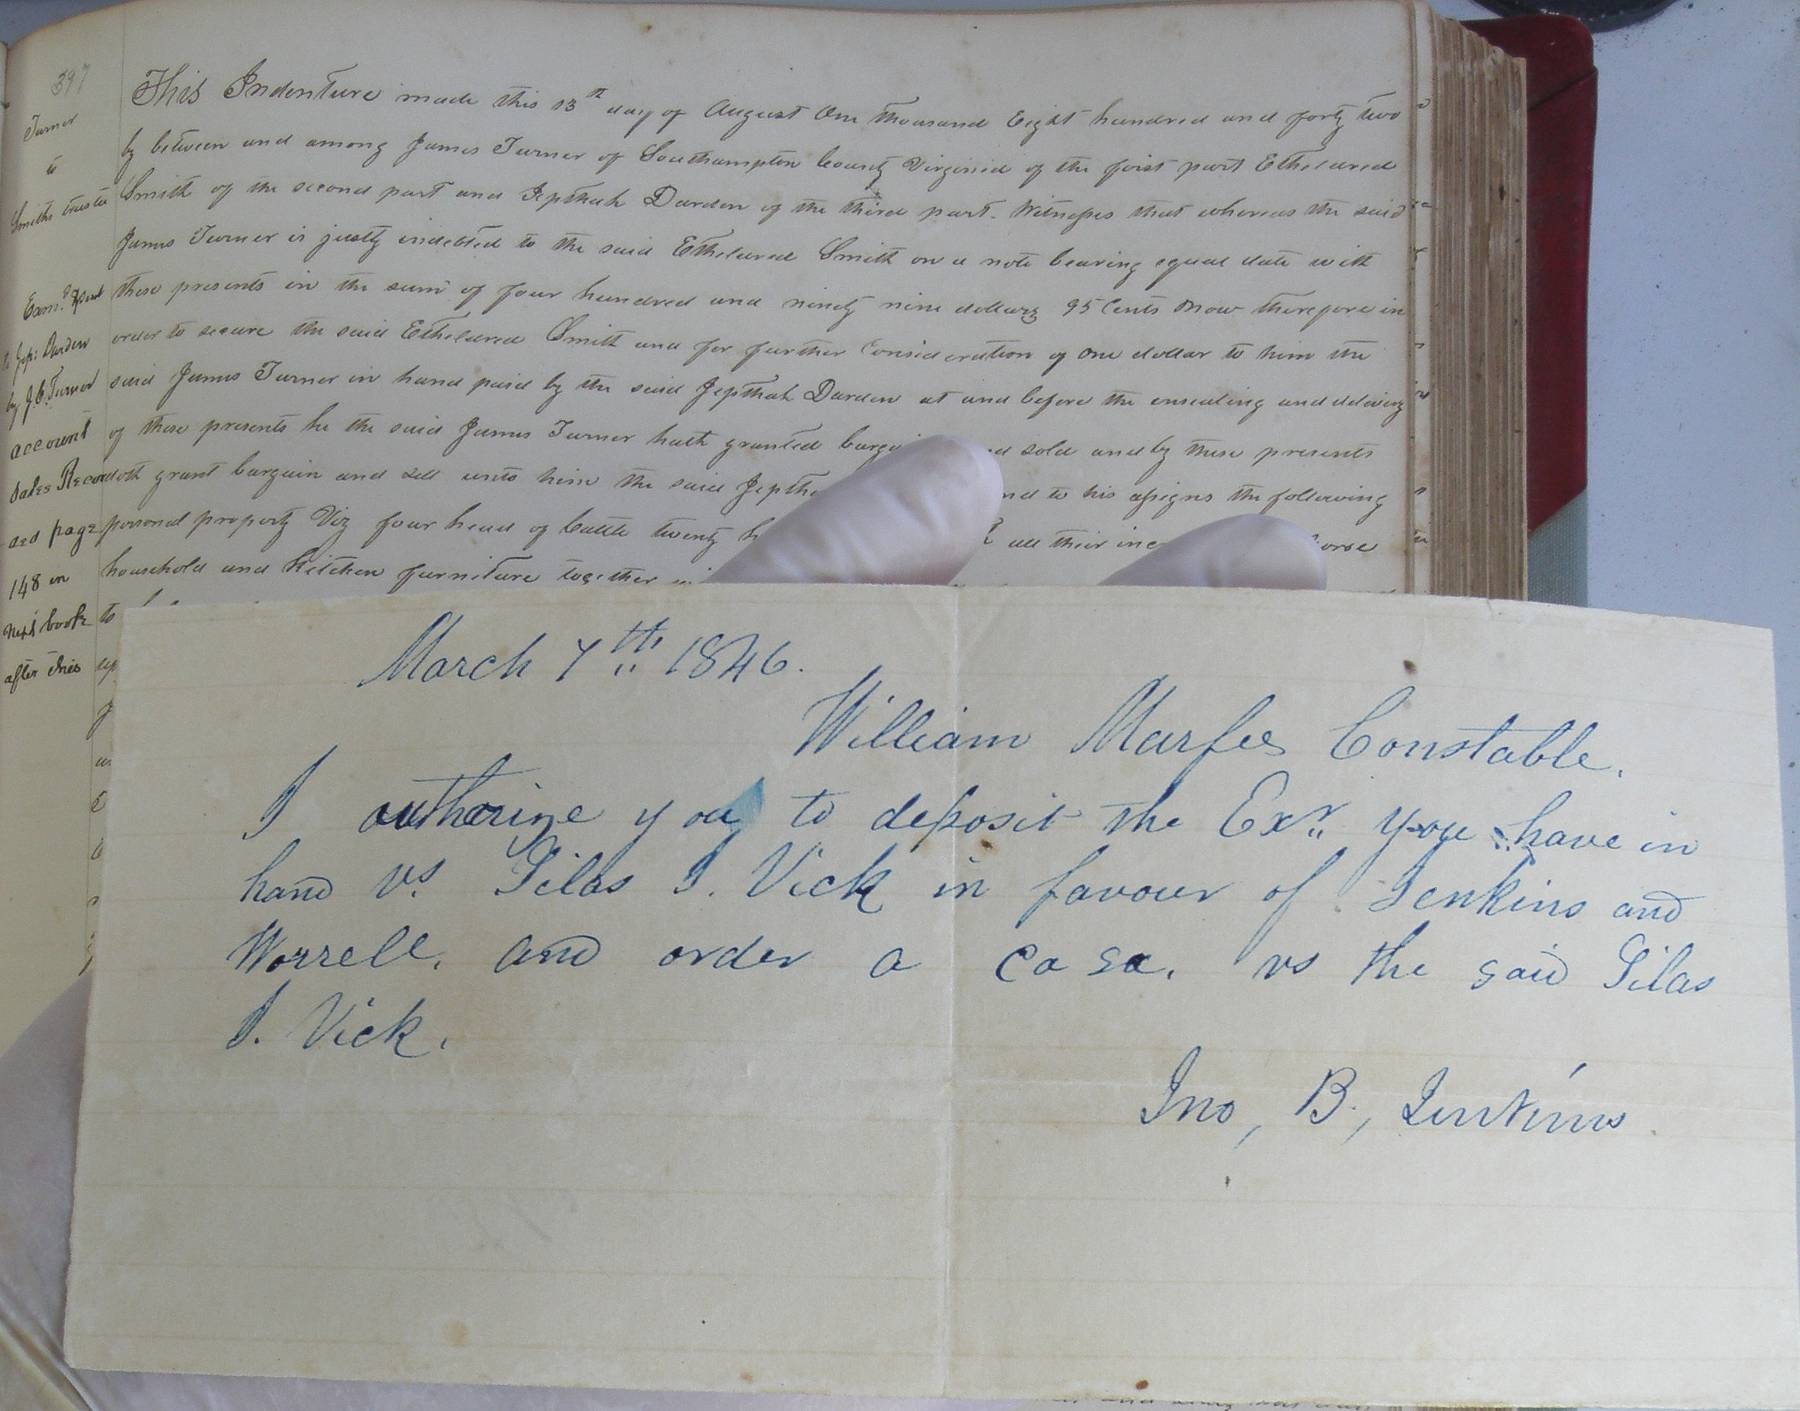 397
Turner
to
Smiths trustee
Exam.d &
to Jep: Darden
by J. E. Turner
account
Sales Record
ed page
148 in
next book
after this
This Indenture made this 13th day of August One thousand Eight hundred and forty two
by between and among James Turner of Southampton County Virginia of the first part Ethelared
Smith of the second part and Jepthah Darden of the third part. Witnesses that whereas the said
James Turner is justly indebted to the said Ethelared Smith on a note bearing equal date with
these presents in the sum of four hundred and ninety nine dollars 95 Cents Now therefore in
order to secure the said Ethelared Smith and for further Consideration of One dollar to him the
said James Turner in hand paid by the said Jepthah Darden at and before the ensealing and delivery
of these presents he the said James Turner hath granted sold and by these presents
doth grant bargain and sell unto him the said to his assigns the following
personal property Viz four head of Cattle twenty all their
household and Kitchen furniture together
to
March 7th 1846.
William Marfes Constable.
I authorize you to deposit the Exn. you have in
hand vs. Silas J. Vick in favour of Jenkins and
Worrell. and order a ca sa. vs the said Silas
J. Vick.
Jno, B., Jenkins